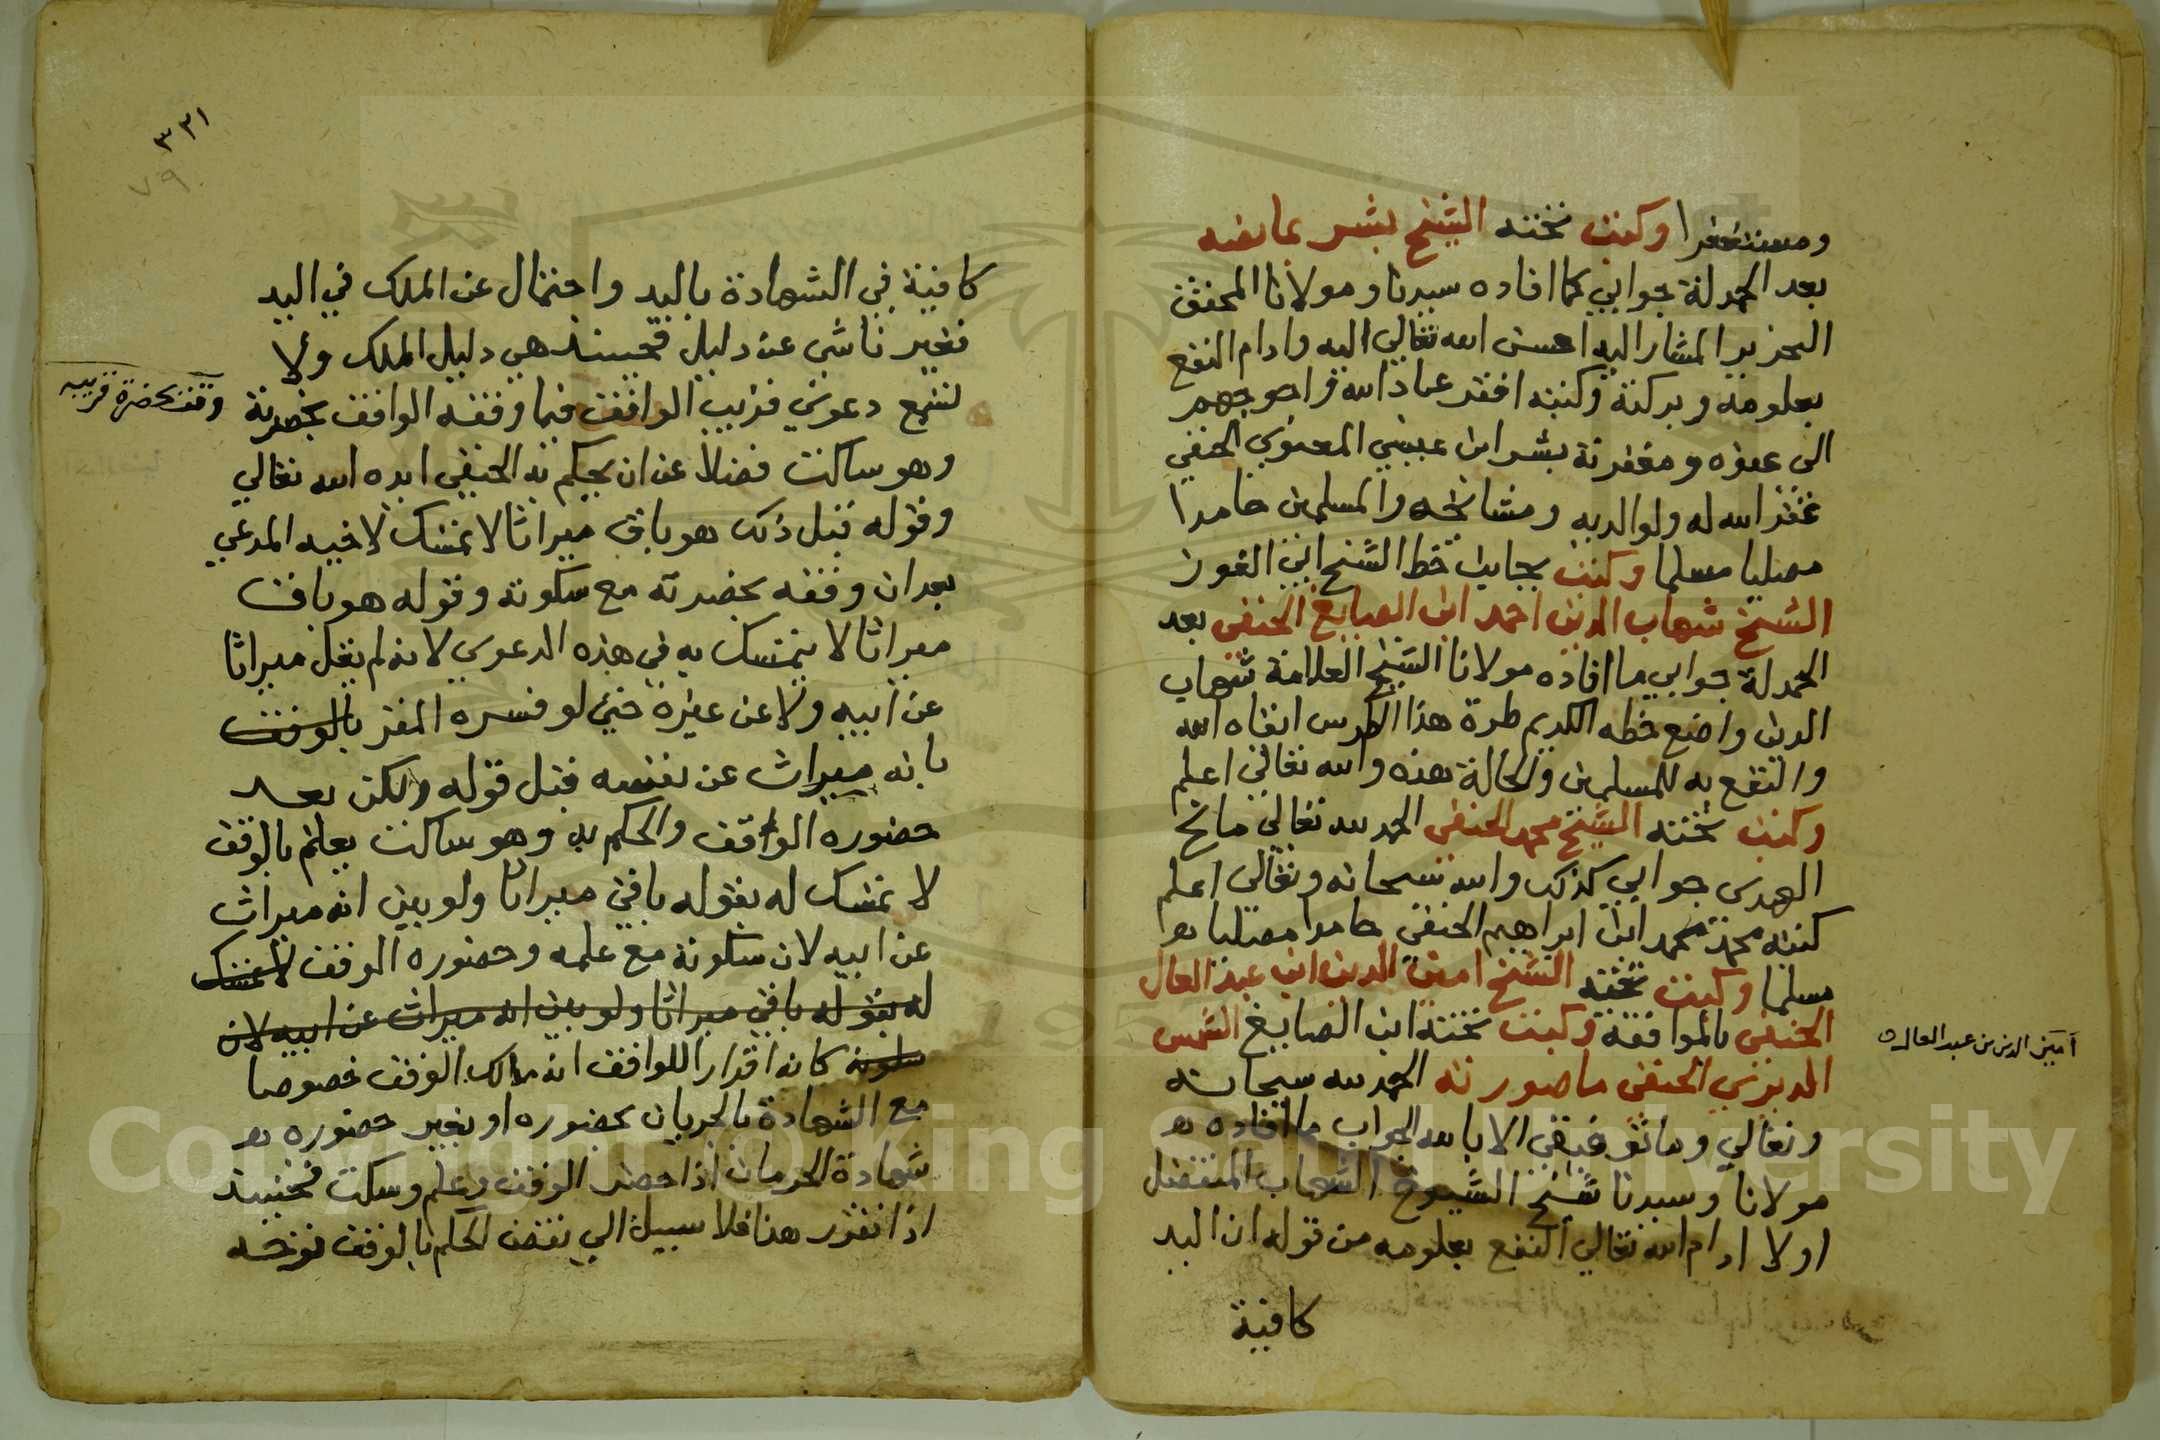 ومستغفرا وكتب تحته الشيخ بشر بما نصه
بعد الحمدلة جوابي كما افاده سيدنا ومولانا المحقق
النحرير المشار اليه احسن الله تعالي اليه وادام النفع
بعلومه وبركته وكتبه افقر عباد الله واحوجهم
الى عفوه ومغفرته بشر ابن عيسي الحنفي
غفر الله له ولوالديه ومشائخه والمسلمين حامدا
مصليا مسلما وكتب بجانب خط الشيخ
الشيخ شهاب الدين احمد ابن الصايغ الحنفي بعد
الحمدلة جوابي ما افاده مولانا الشيخ العلامة شهاب
الدين واضع خطه الكريم طرة هذا الطرس ابقاه الله
والنفع به للمسلمين والحالة هذه والله تعالي اعلم
وكتب تحته الشيخ محمد الحنفي الحمد لله تعالي مانح
الهدى جوابي كذلك والله سبحانه وتعالي اعلم
كتبه محمد ابن ابراهيم الحنفي حامدا مصليا
مسلما وكتب تحته الشيخ امين الدين ابن عبد العال
الحنفي بالموافقة وكتب تحته ابن الصايغ الشمس
الحنفي ما صورته الحمد لله سبحانه
وتعالي وما توفيقي الا بالله الجواب ما افاده
مولانا وسيدنا شيخ الشيوخ الشهاب المتفضل
اولا ادام الله تعالي النفع بعلومه من قوله ان اليد
كافية
امين الدين بن عبد العال
٣٣١
٧٩
كافية في الشهادة باليد واحتمال عن الملك في اليد
بغير ناشي عن دليل فحينئذ هي دليل الملك ولا
تسمع دعوي قريب الواقف فيما وقفه الواقف بحضرته
وقف بحضرة قريبه
وهو ساكت فضلا عن ان يحكم به الحنفي ايده الله تعالي
وقوله قبل ذلك هو باق ميراثا لا تمسك لاخيه المدعي
بعد ان وقفه بحضرته مع سكوته وقوله هو باق
ميراثا لا يتمسك به في هذه الدعوي لانه لم يقل ميراثا
عن ابيه ولا عن غيره حتي لو فسره المقر بالوقف
بانه ميراث عن نفسه قبل قوله ولكن بعد
حضوره الواقف والحكم به وهو ساكت يعلم بالوقف
لا تمسك له بقوله باقي ميراثا ولو بين انه ميراث
عن ابيه لان سكوته مع علمه وحضوره الوقف لا تمسك
له بقوله باقي ميراثا ولو بين انه ميراث عن ابيه لان
سكوته كانه اقرار للواقف انه مالك الوقف خصوصا
مع الشهادة بالجريان بحضوره او بغير حضوره
شهادة الحرمان اذا حضر الوقف وعلم وسكت فحينئذ
اذا تقرر هذا فلا سبيل الي نقض الحكم بالوقف
Copyright © King Saud University